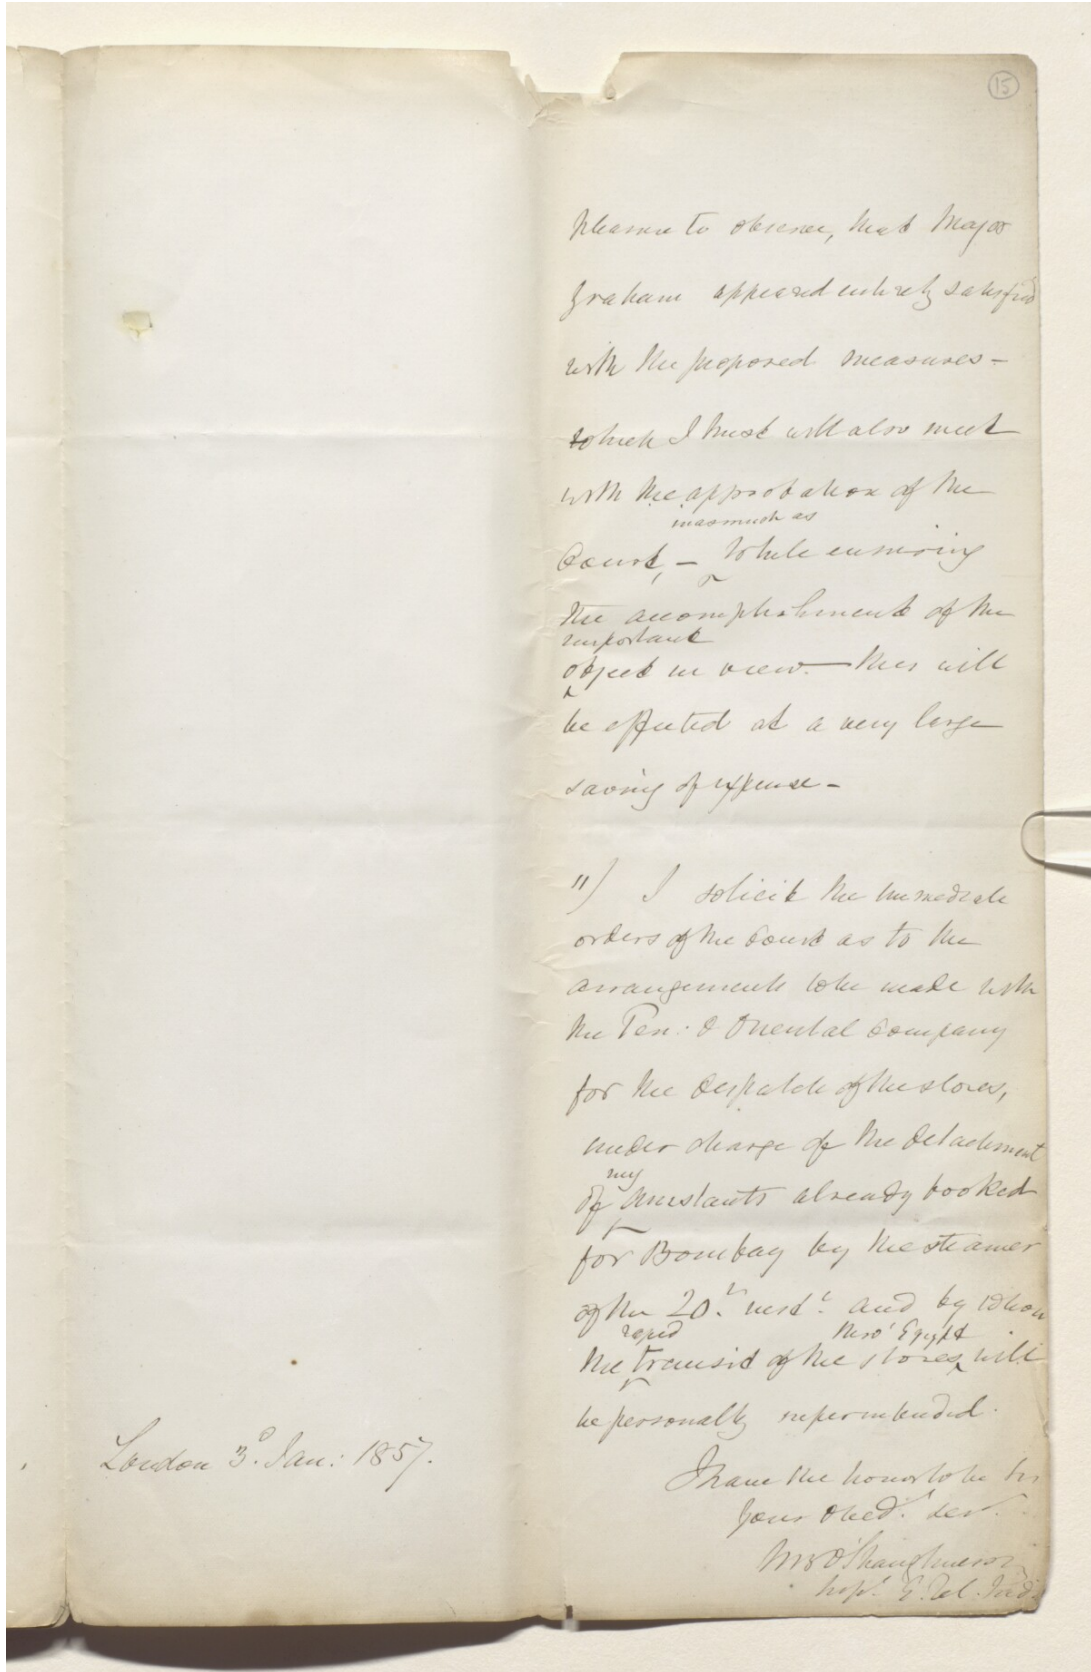 15
pleasure to observe, that Major
Graham appeared entirely satisfied
with the proposed measures –
which I trust will also meet
with the approbation of the
inasmuch as
Court, – while ensuring
the accomplishment of the
important
object in view – this will
be effected at a very large
saving of expense –
11) I solicit the immediate
orders of the Court as to the
arrangements to be made with
the Pen: & Oriental Company
for the despatch of the stores,
under charge of the detachment
my
of Assistants already booked
for Bombay by the steamer
of the 20th inst. and by whom
rapid thro' Egypt
the transit of the stores will
be personally superintended.
I have the honor to be Sir
Your Obedt. Servt.
WB O'Shaughnessy
Supt. E. Tel. Ind
London 3d. Jan: 1857.